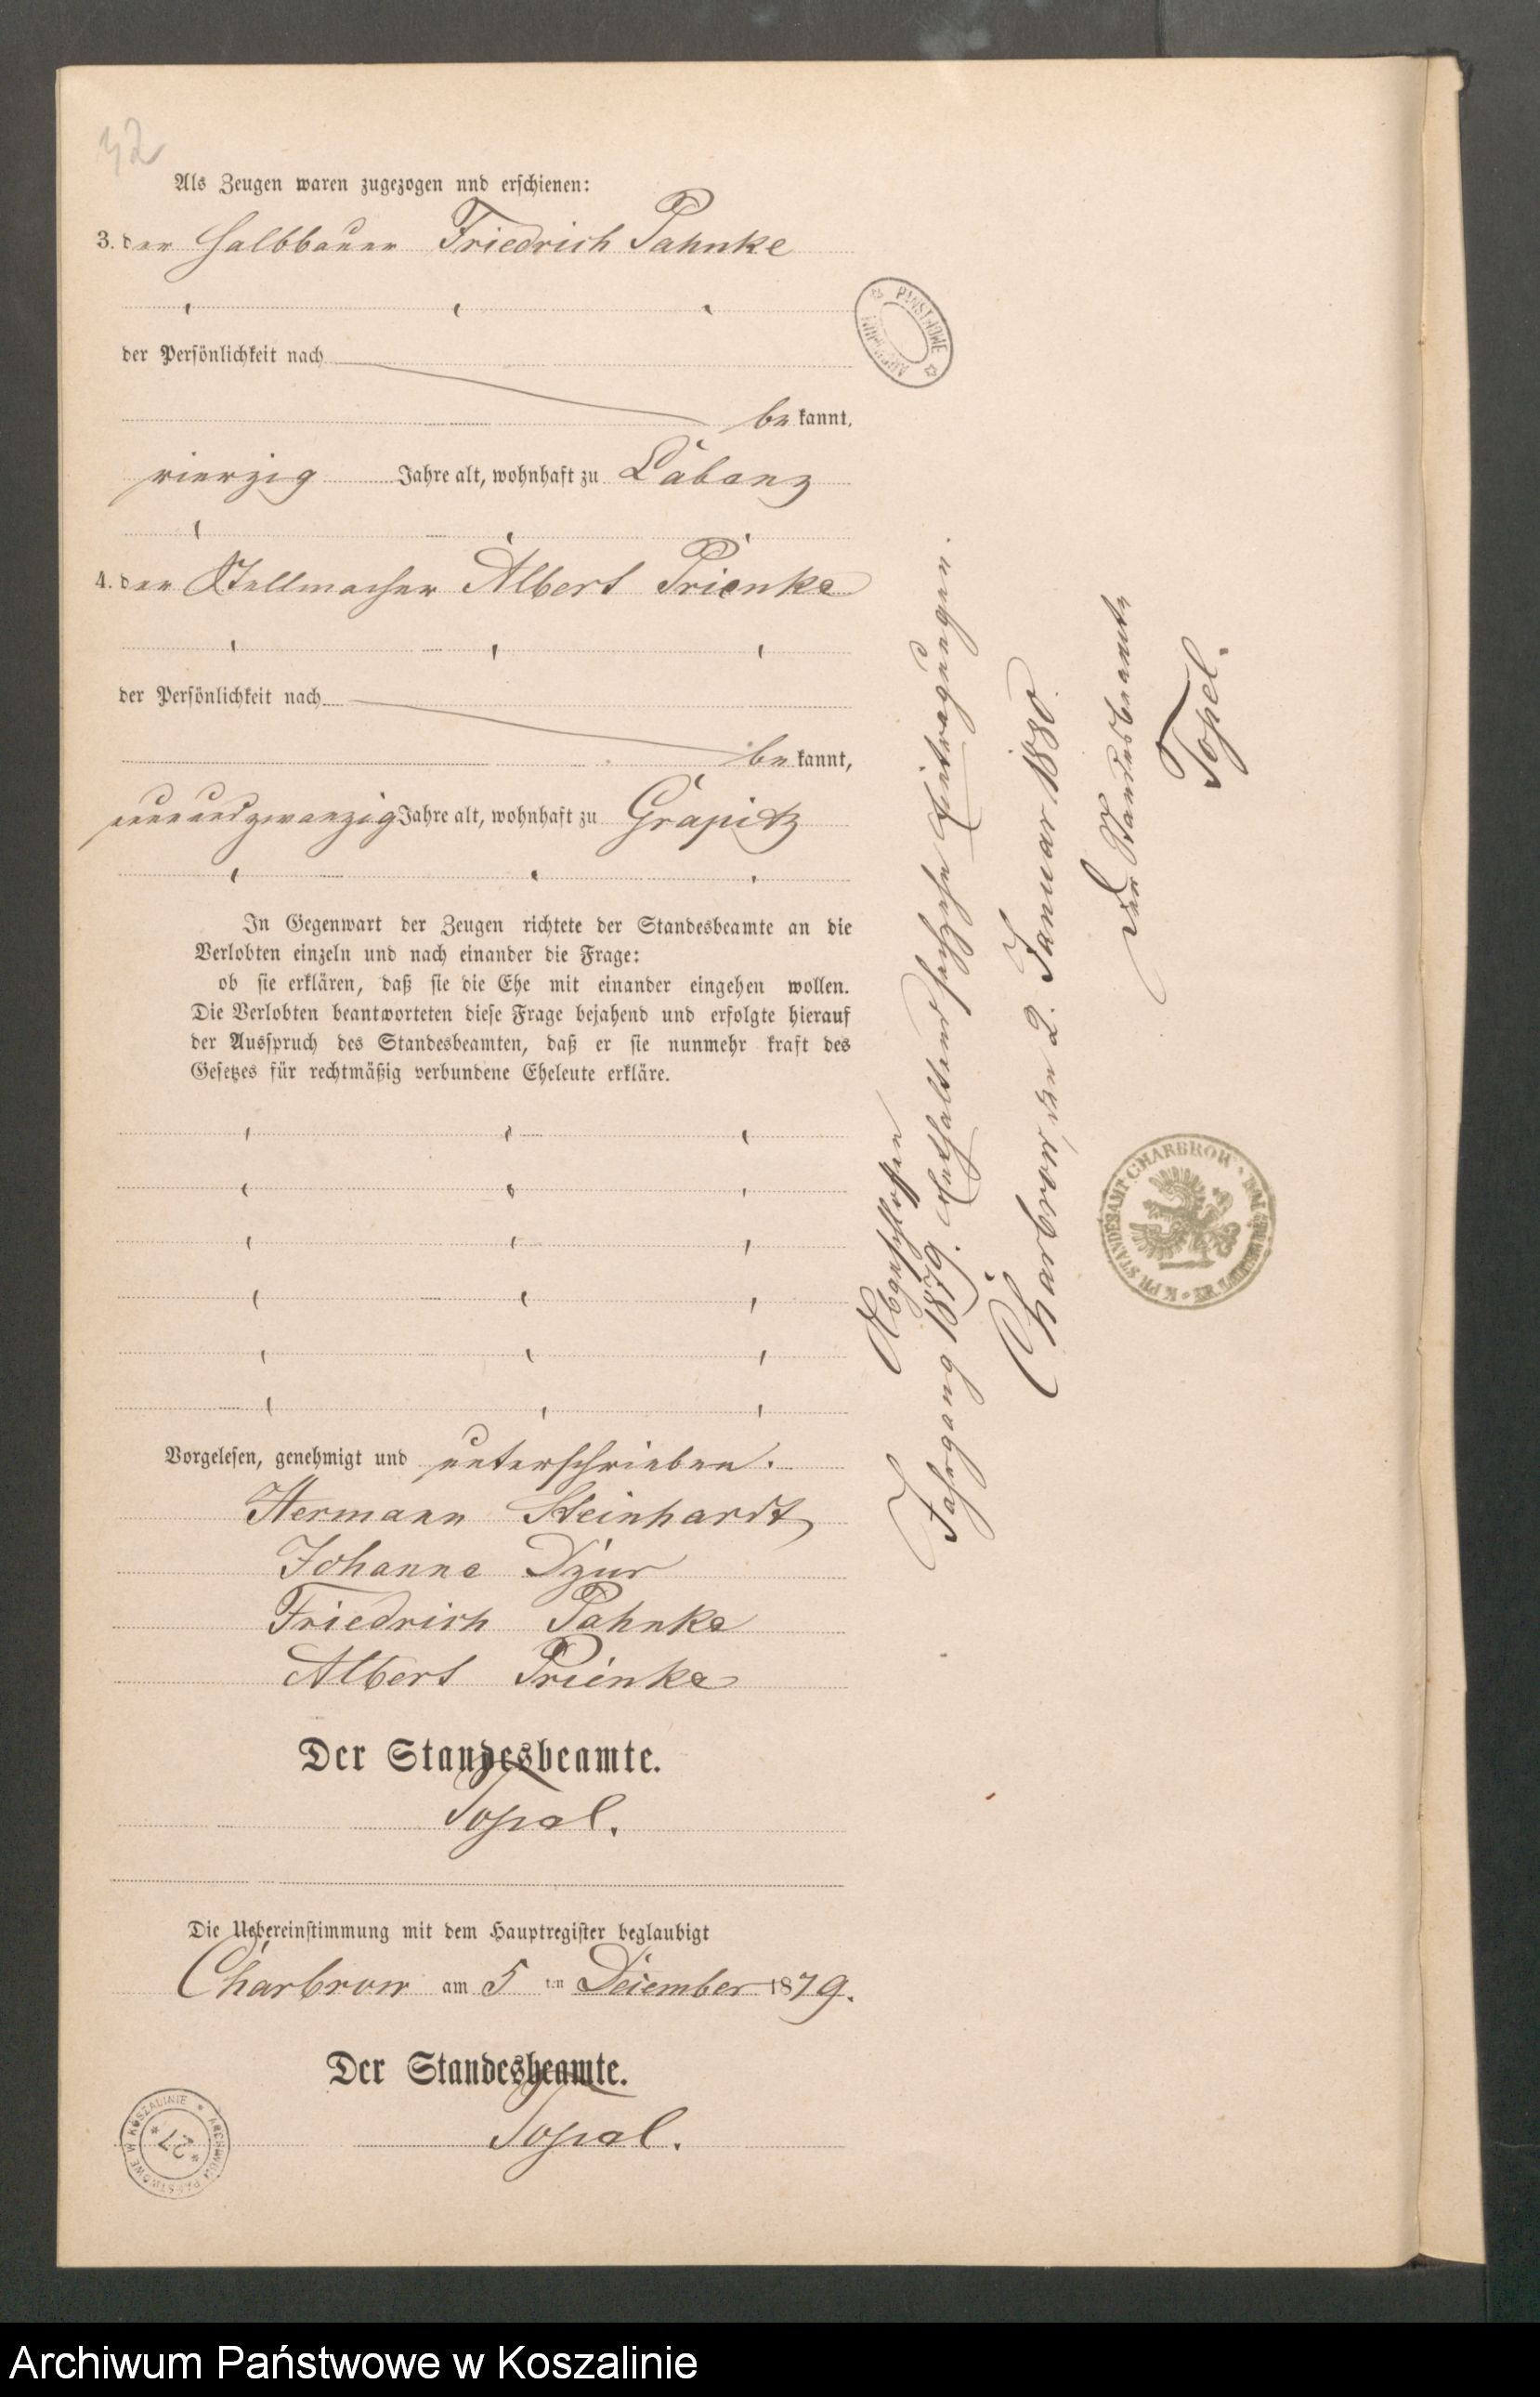 32
Als Zeugen waren zugezogen nnd erschienen:
3. der Halbbauer Friedrich Pahnke
der Persönlichkeit nach
bekannt,
vierzig Jahre alt, wohnhaft zu Labenz
4. der Stellmacher Albert Prienke
der Persönlichkeit nach
bekannt,
neunundzwanzig Jahre alt, wohnhaft zu Grapitz
In Gegenwart der Zeugen richtete der Standesbeamte an die
Verlobten einzeln und nach einander die Frage:
ob sie erklären, daß sie die Ehe mit einander eingehen wollen.
Die Verlobten beantworteten diese Frage bejahend und erfolgte hierauf
der Ausspruch des Standesbeamten, daß er sie nunmehr kraft des
Gesetzes für rechtmäßig verbundene Eheleute erkläre.
Vorgelesen, genehmigt und unterschrieben.
Hermann Steinhardt
Johanne Dzur
Friedrich Pahnke
Albert Prienke
Der Standesbeamte.
Topel.
Die Uebereinstimmung mit dem Hauptregister beglaubigt
Charbrow am 5 ten December 1879.
Der Standesbeamte.
Topel.
Abgeschlossen
Jahrgang 1879. Enthaltend sechzehn Eintragungen.
Charbrow, den 2. Januar 1880.
Der Standesbeamte
Topel.
PAŃSTWOWE ARCHIWUM
K. PR. STANDESAMT CHARBROW
ARCHIWUM PAŃSTWOWE W KOSZALINIE
27
Archiwum Państwowe w Koszalinie